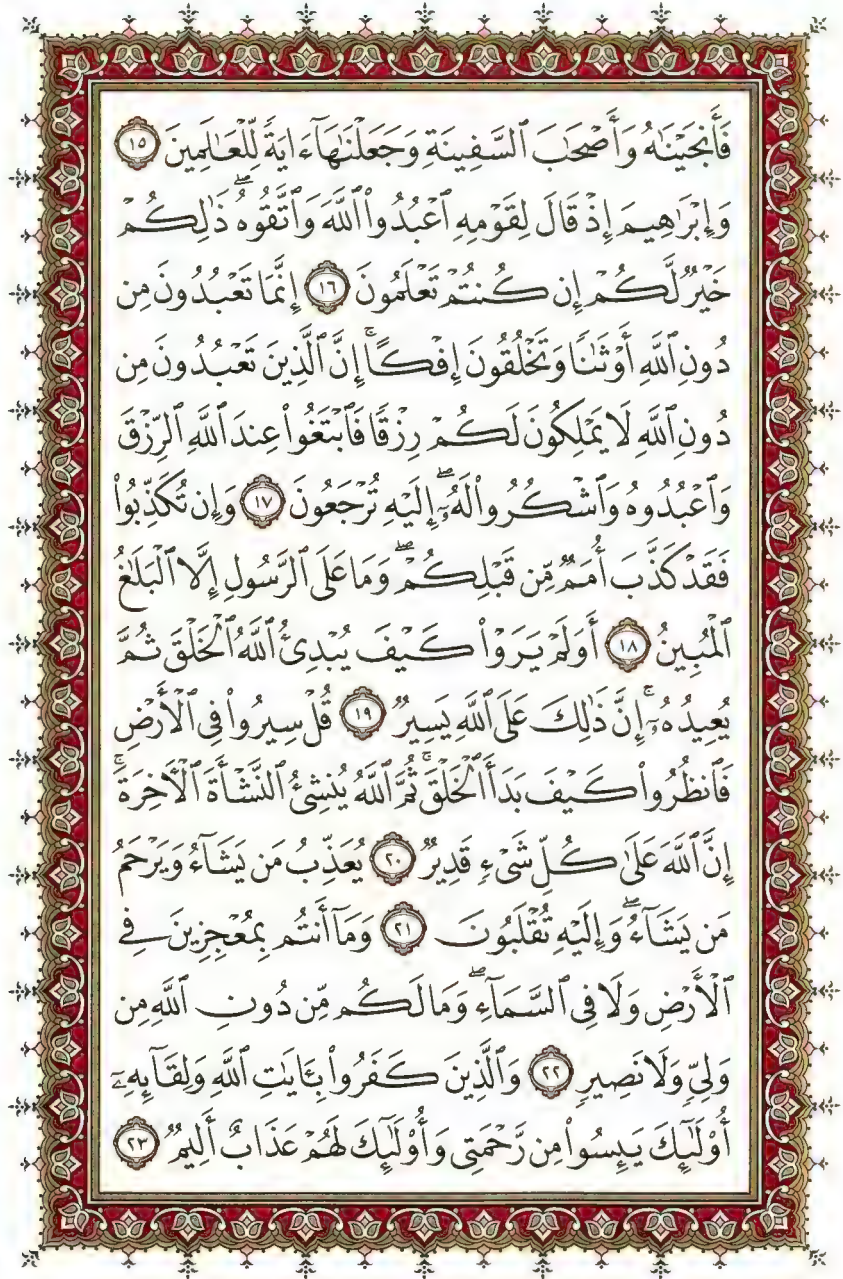 فَأَنجَيْنَٰهُ وَأَصْحَٰبَ ٱلسَّفِينَةِ وَجَعَلْنَٰهَآ ءَايَةً لِّلْعَٰلَمِينَ ١٥
وَإِبْرَٰهِيمَ إِذْ قَالَ لِقَوْمِهِ ٱعْبُدُوا۟ ٱللَّهَ وَٱتَّقُوهُ ۖ ذَٰلِكُمْ
خَيْرٌ لَّكُمْ إِن كُنتُمْ تَعْلَمُونَ ١٦ إِنَّمَا تَعْبُدُونَ مِن
دُونِ ٱللَّهِ أَوْثَٰنًا وَتَخْلُقُونَ إِفْكًا ۚ إِنَّ ٱلَّذِينَ تَعْبُدُونَ مِن
دُونِ ٱللَّهِ لَا يَمْلِكُونَ لَكُمْ رِزْقًا فَٱبْتَغُوا۟ عِندَ ٱللَّهِ ٱلرِّزْقَ
وَٱعْبُدُوهُ وَٱشْكُرُوا۟ لَهُۥٓ ۖ إِلَيْهِ تُرْجَعُونَ ١٧ وَإِن تُكَذِّبُوا۟
فَقَدْ كَذَّبَ أُمَمٌ مِّن قَبْلِكُمْ ۖ وَمَا عَلَى ٱلرَّسُولِ إِلَّا ٱلْبَلَٰغُ
ٱلْمُبِينُ ١٨ أَوَلَمْ يَرَوْا۟ كَيْفَ يُبْدِئُ ٱللَّهُ ٱلْخَلْقَ ثُمَّ
يُعِيدُهُۥٓ ۚ إِنَّ ذَٰلِكَ عَلَى ٱللَّهِ يَسِيرٌ ١٩ قُلْ سِيرُوا۟ فِى ٱلْأَرْضِ
فَٱنظُرُوا۟ كَيْفَ بَدَأَ ٱلْخَلْقَ ۚ ثُمَّ ٱللَّهُ يُنشِئُ ٱلنَّشْأَةَ ٱلْـَٔاخِرَةَ ۚ
إِنَّ ٱللَّهَ عَلَىٰ كُلِّ شَىْءٍ قَدِيرٌ ٢٠ يُعَذِّبُ مَن يَشَآءُ وَيَرْحَمُ
مَن يَشَآءُ ۖ وَإِلَيْهِ تُقْلَبُونَ ٢١ وَمَآ أَنتُم بِمُعْجِزِينَ فِى
ٱلْأَرْضِ وَلَا فِى ٱلسَّمَآءِ ۖ وَمَا لَكُم مِّن دُونِ ٱللَّهِ مِن
وَلِىٍّ وَلَا نَصِيرٍ ٢٢ وَٱلَّذِينَ كَفَرُوا۟ بِـَٔايَٰتِ ٱللَّهِ وَلِقَآئِهِۦٓ
أُو۟لَٰٓئِكَ يَئِسُوا۟ مِن رَّحْمَتِى وَأُو۟لَٰٓئِكَ لَهُمْ عَذَابٌ أَلِيمٌ ٢٣